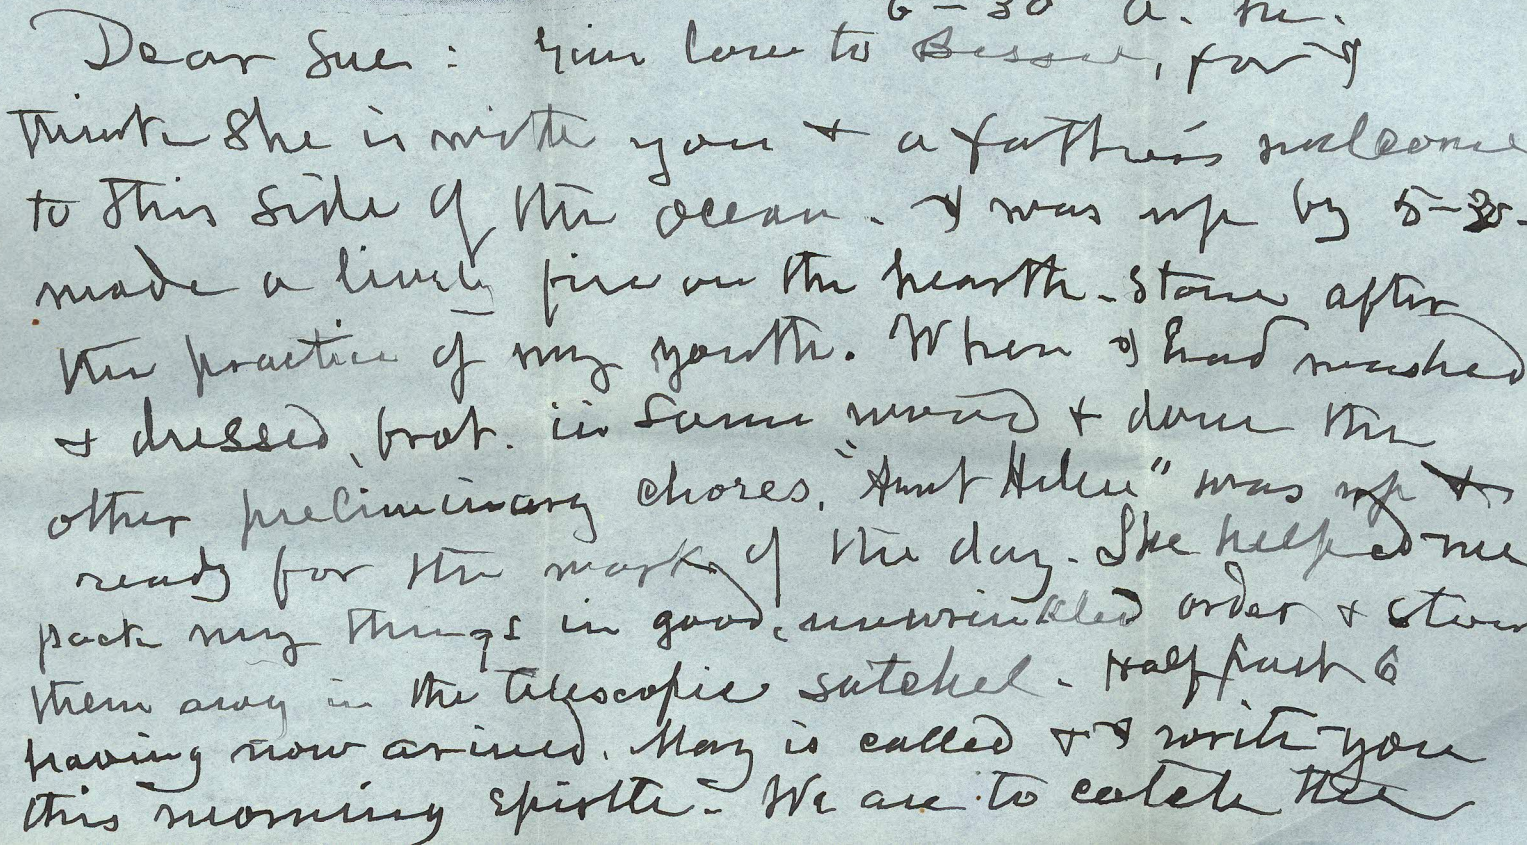 6-30 a.m.
Dear Sue: Give love to Bessie, for I
think she is with you + a father's welcome
to this side of the ocean. I was up by 5-30.
made a lively fire on the hearth-stone after
the practice of my youth. When I had washed
+ dressed, brot. in some wood + done the
other preliminary chores, "Aunt Helen" was up +
ready for the work of the day. She helped me
pack my things in good, unwrinkled order + stow
them away in the telescopic satchel. Half past 6
having now arrived. May is called + I write you
this morning epistle. We are to catch the